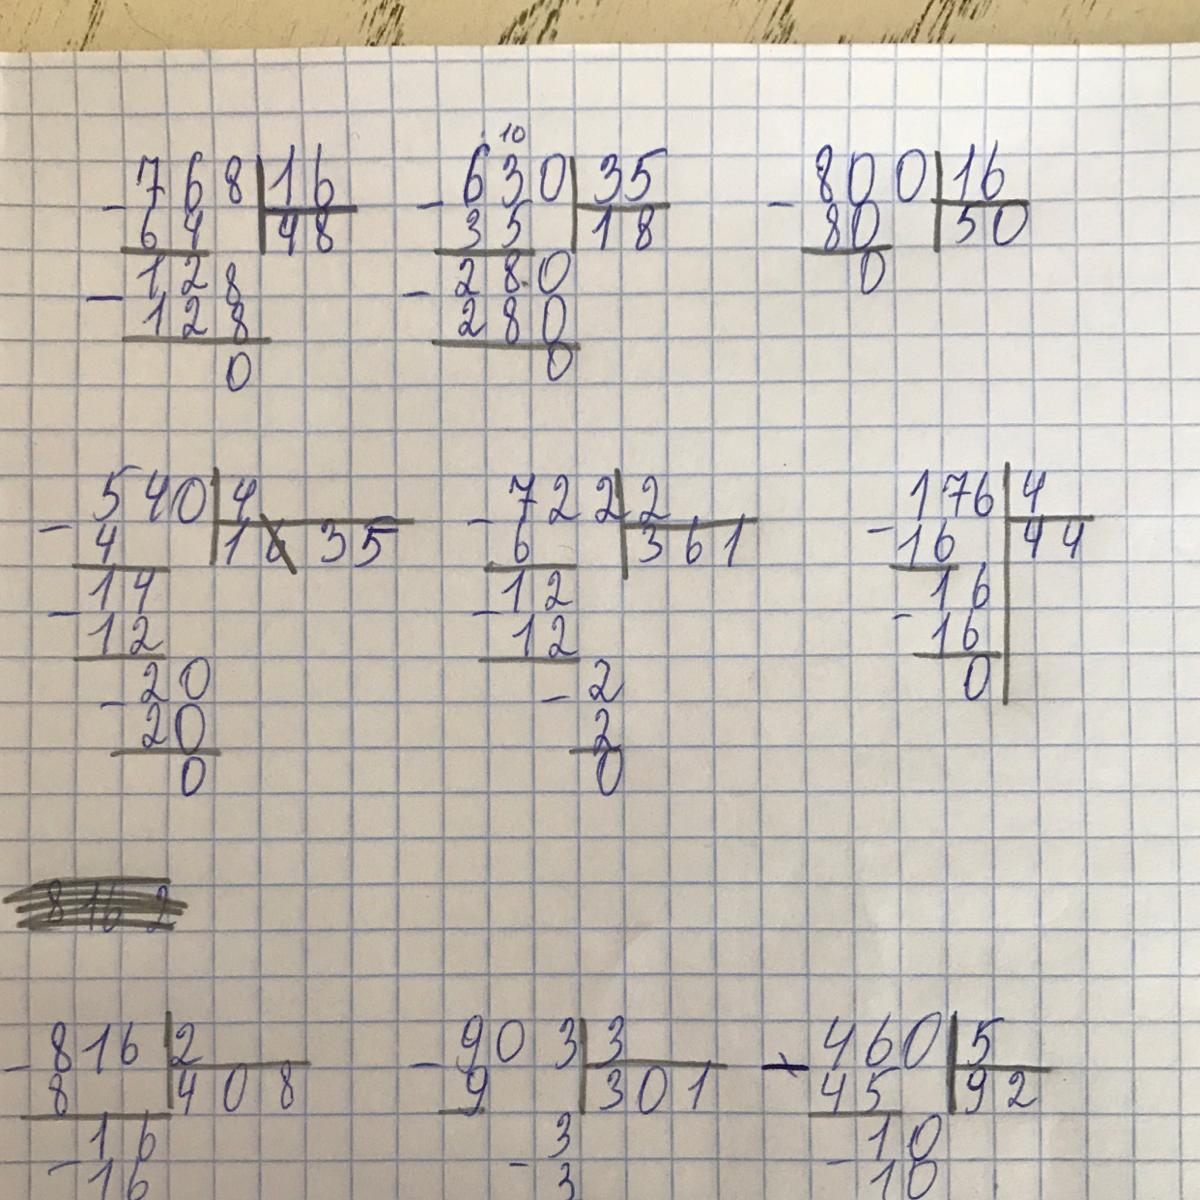 10
768 16 630 35 800 16
- 64 48 - 35 18 - 80 50
128 280 0
- 128 - 280
0 0
540 4 722 2 176 4
- 4 16 35 - 6 361 - 16 44
14 12 16
- 12 - 12 - 16
20 - 2 0
- 20 2
0 0
816 2
816 2 903 3 460 5
- 8 408 - 9 301 - 45 92
16 3 10
- 16 - 3 - 10